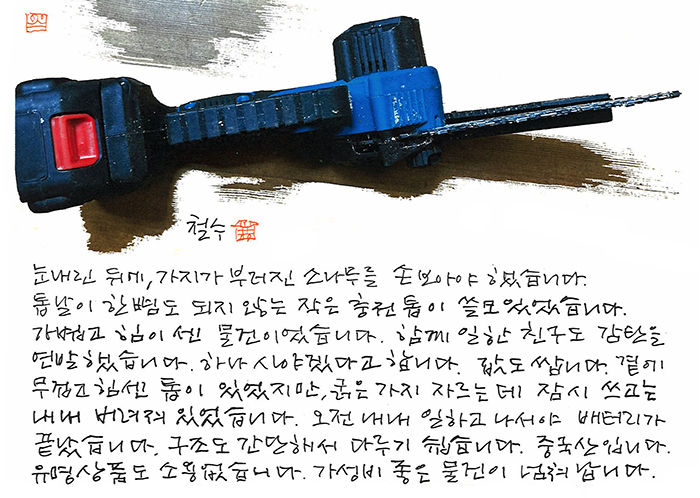 철수
눈내린 뒤에, 가지가 부러진 소나무를 손보아야 했습니다.
톱날이 한뼘도 되지 않는 작은 충전톱이 쓸모있었습니다.
가볍고 힘이 센 물건이었습니다. 함께 일한 친구도 감탄을
연발했습니다. 하나 사야겠다고 합니다. 값도 쌉니다. 곁에
무겁고 힘센 톱이 있었지만, 굵은 가지 자르는데 잠시 쓰고는
내내 버려져 있었습니다. 오전 내내 일하고 나서야 배터리가
끝났습니다. 구조도 간단해서 다루기 쉽습니다. 중국산입니다.
유명상품도 소용없습니다. 가성비 좋은 물건이 넘쳐납니다.